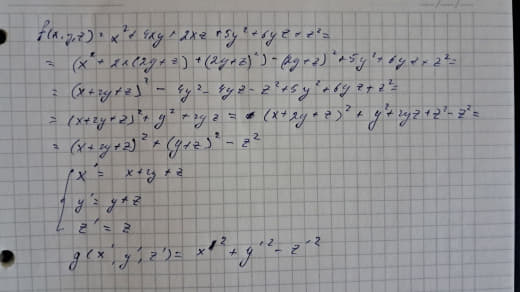 f(x,y,z) = x² + 4xy + 2xz + 5y² + 6yz + z² =
= (x² + 2x(2y+z) + (2y+z)²) - (2y+z)² + 5y² + 6yz + z² =
= (x+2y+z)² - 4y² - 4yz - z² + 5y² + 6yz + z² =
= (x+2y+z)² + y² + 2yz = (x+2y+z)² + y² + 2yz + z² - z² =
= (x+2y+z)² + (y+z)² - z²
{ x' = x+2y+z
y' = y+z
z' = z
g(x', y', z') = x'² + y'² - z'²